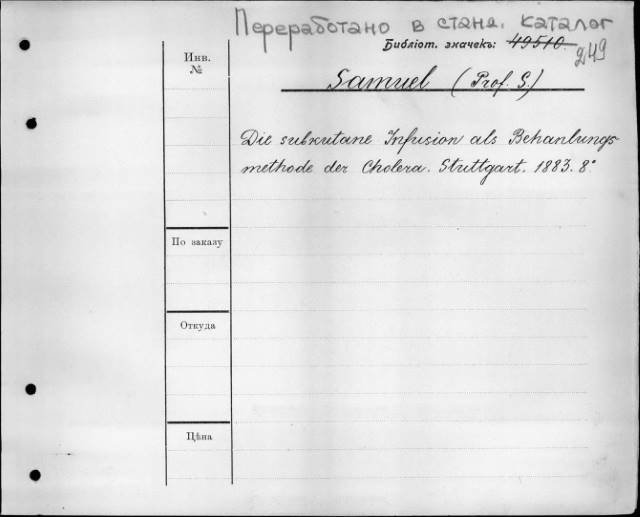 Переработано в станд. каталог
Библіот. значекъ: 49510
249
Инв.
№
Samuel (Prof. S.)
Die subkutane Infusion als Behanlungs
methode der Cholera. Stuttgart. 1883. 8°
По заказу
Откуда
Цѣна